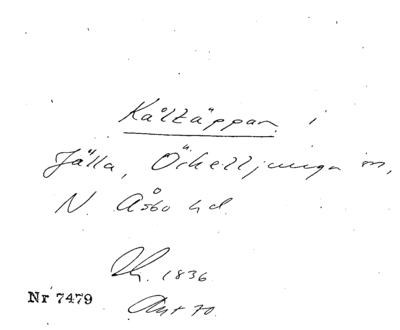 Kåltäppan i
Jälla, Örkelljunga sn,
N. Åsbo hd.
1836
Nr 7479